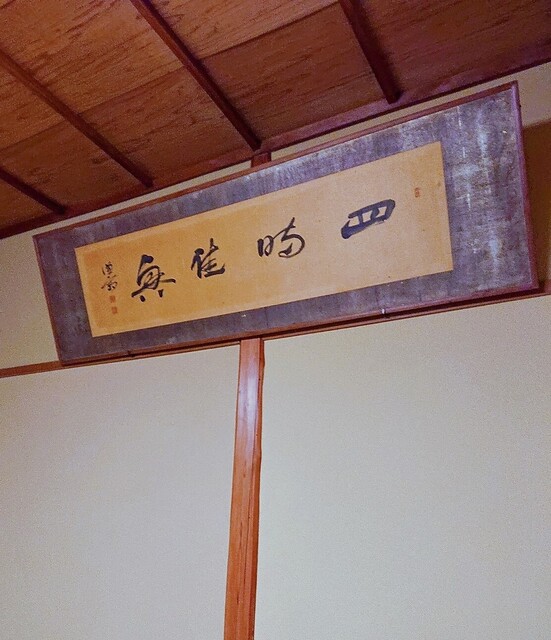 四時佳興